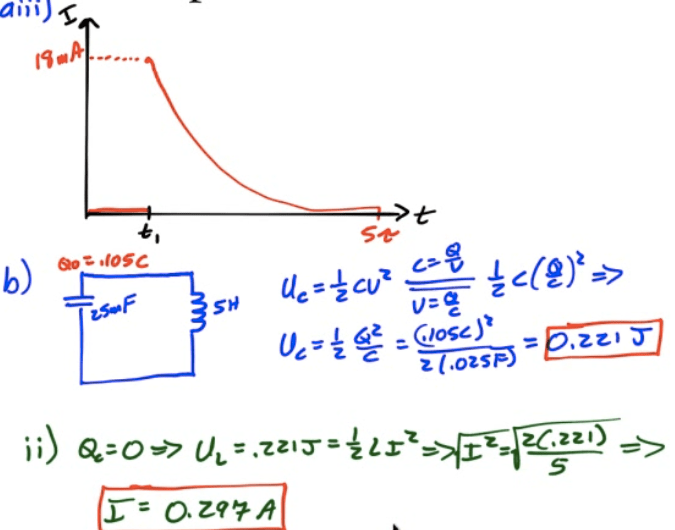 aiii) I
18mA
t
t₁ 5τ
b) Q₀=.105C
25mF 5H
U_c=½CV² C=Q/V V=Q/C ½C(Q/C)² =>
U_c=½ Q²/C = (.105C)²/2(.025F) = 0.221 J
ii) Q_c=0 => U_L=.221J=½LI² => √I²=√2(.221)/5 =>
I= 0.297A